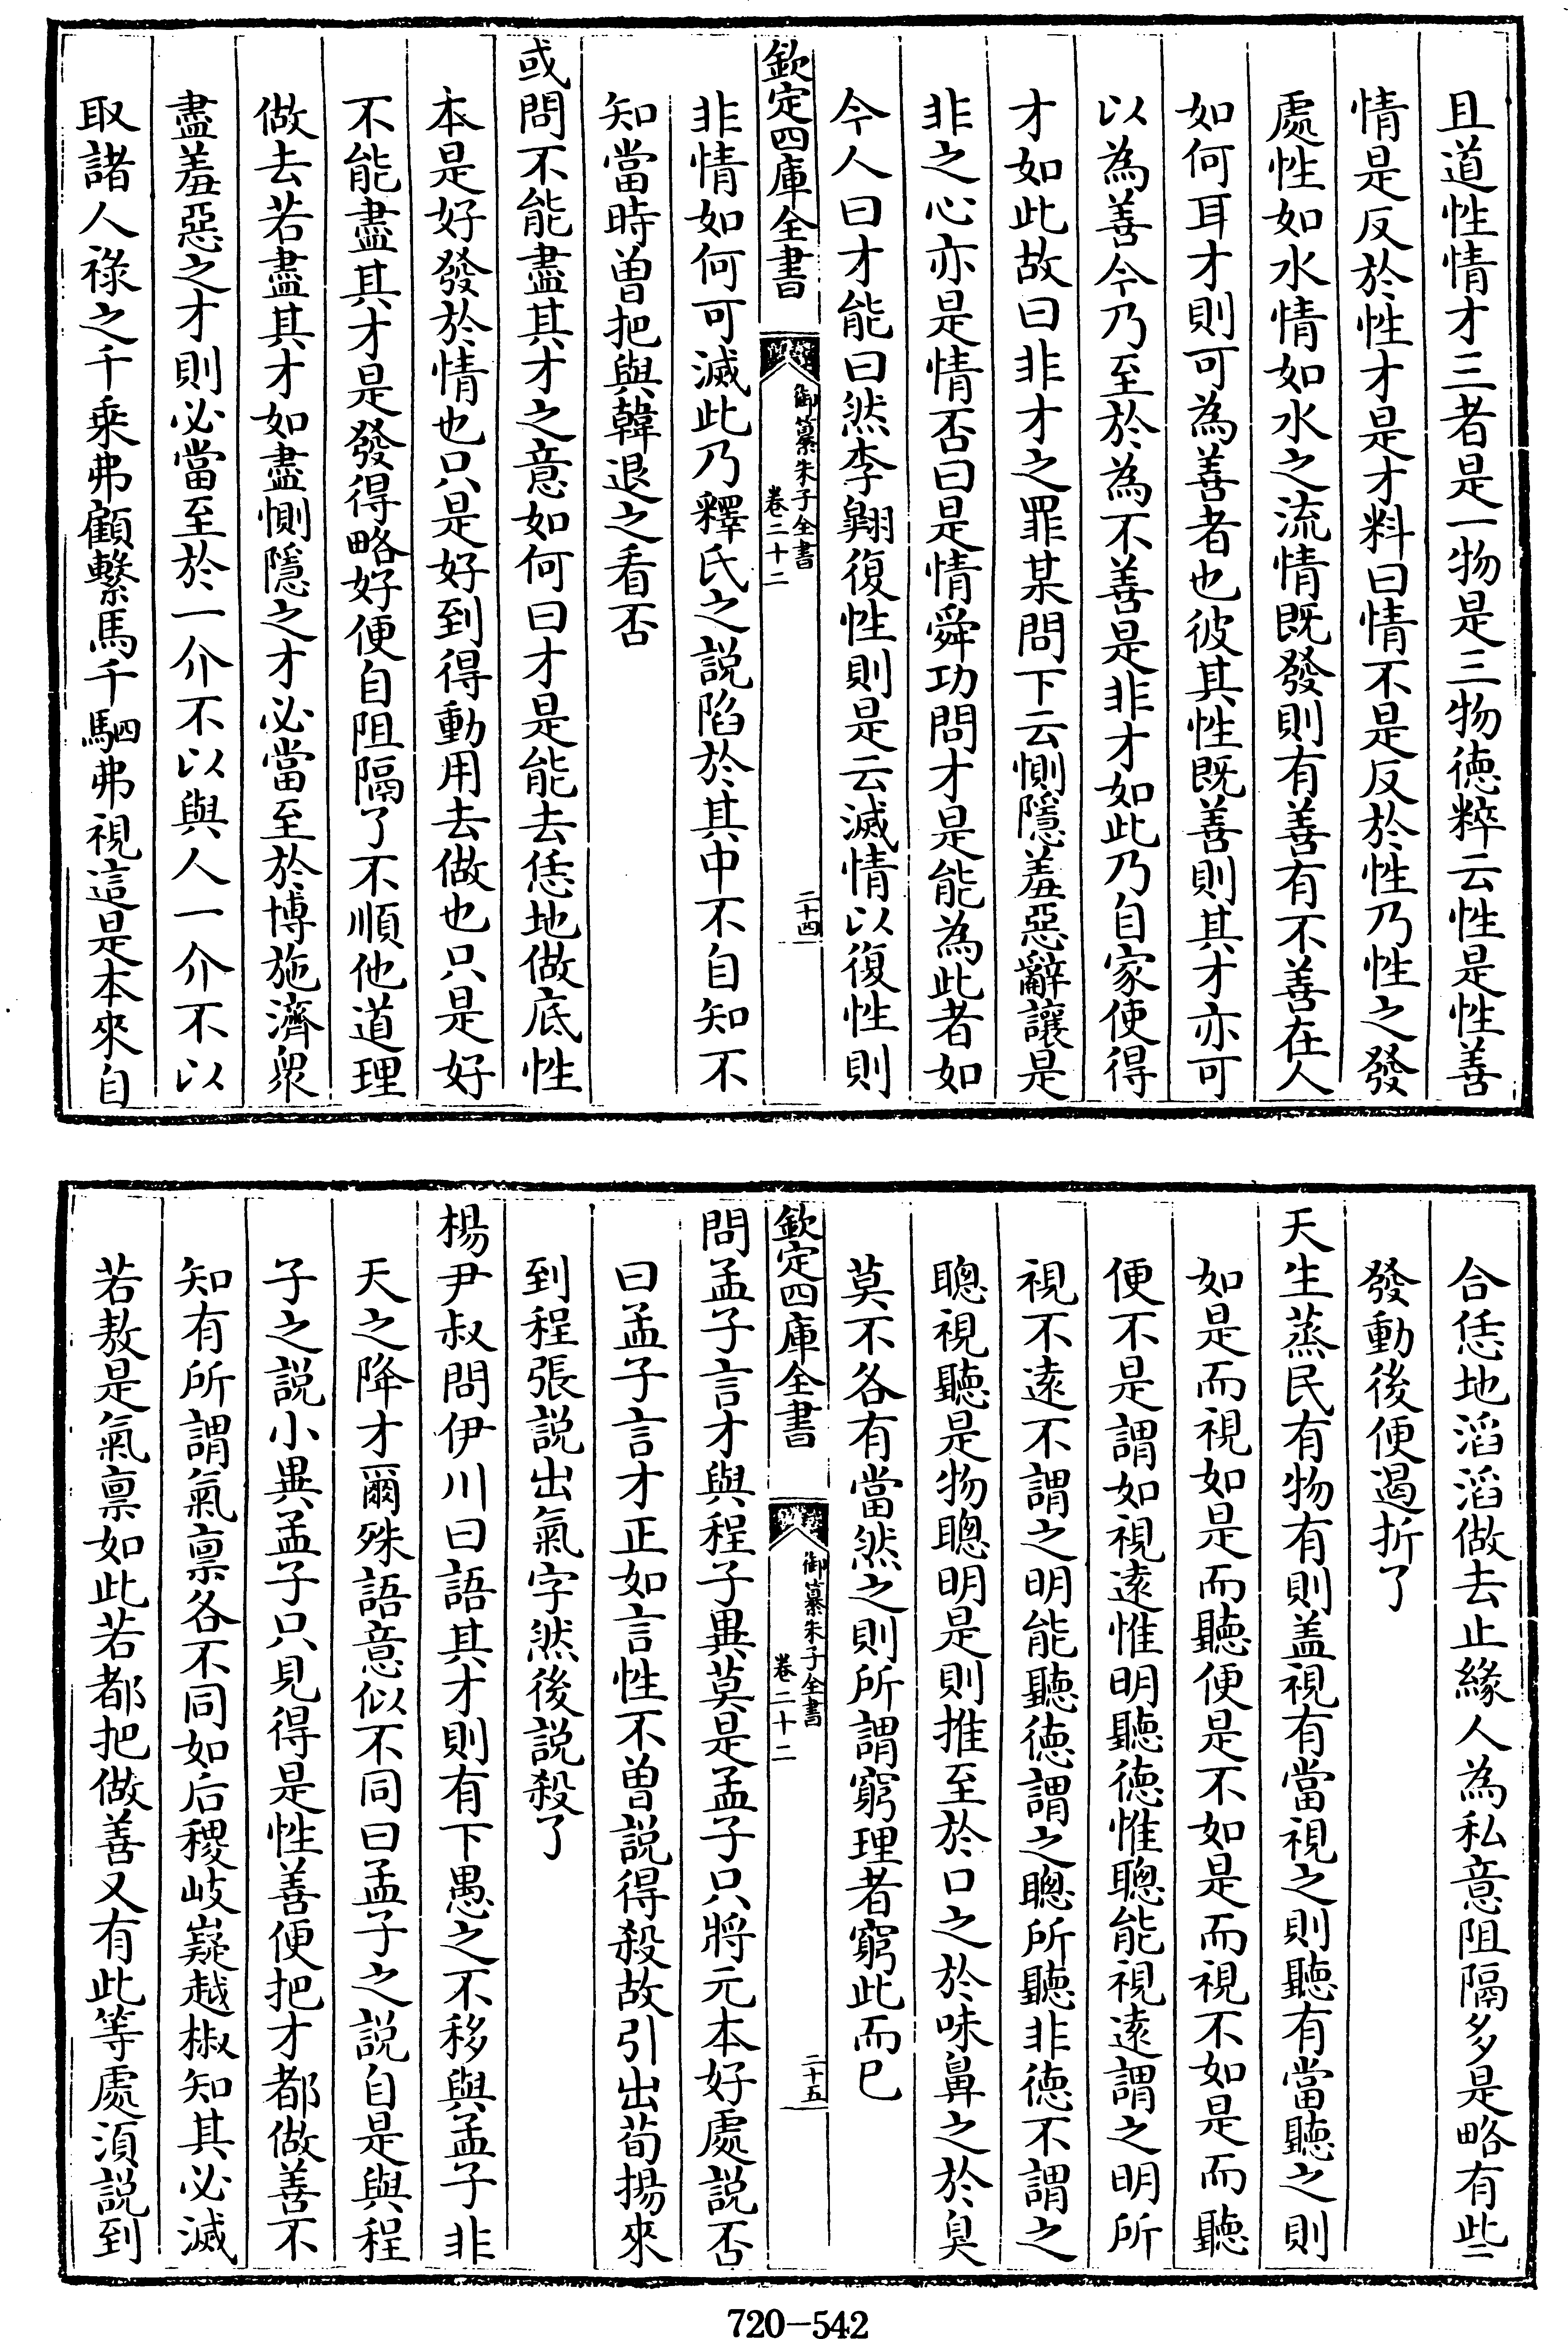 且道性情才三者是一物是三物徳粹云性是性善
情是反於性才是才料曰情不是反於性乃性之發
處性如水情如水之流情既發則有善有不善在人
如何耳才則可為善者也彼其性既善則其才亦可
以為善今乃至於為不善是非才如此乃自家使得
才如此故曰非才之罪某問下云惻隱羞惡辭讓是
非之心亦是情否曰是情舜功問才是能為此者如
今人曰才能曰然李翺復性則是云滅情以復性則
欽定四庫全書
御纂朱子全書
卷二十二
二十四
非情如何可滅此乃釋氏之説陷於其中不自知不
知當時曽把與韓退之看否
或問不能盡其才之意如何曰才是能去恁地做底性
本是好發於情也只是好到得動用去做也只是好
不能盡其才是發得略好便自阻隔了不順他道理
做去若盡其才如盡惻隱之才必當至於博施濟衆
盡羞惡之才則必當至於一介不以與人一介不以
取諸人祿之千乗弗顧繫馬千駟弗視這是本來自
合恁地滔滔做去止緣人為私意阻隔多是略有些
發動後便遏折了
天生蒸民有物有則盖視有當視之則聽有當聽之則
如是而視如是而聽便是不如是而視不如是而聽
便不是謂如視逺惟明聽徳惟聰能視逺謂之明所
視不逺不謂之明能聽徳謂之聰所聽非徳不謂之
聰視聽是物聰明是則推至於口之於味鼻之於臭
莫不各有當然之則所謂窮理者窮此而已
欽定四庫全書
御纂朱子全書
卷二十二
二十五
問孟子言才與程子異莫是孟子只將元本好處説否
曰孟子言才正如言性不曽説得殺故引出荀揚來
到程張説出氣字然後説殺了
楊尹叔問伊川曰語其才則有下愚之不移與孟子非
天之降才爾殊語意似不同曰孟子之説自是與程
子之説小異孟子只見得是性善便把才都做善不
知有所謂氣禀各不同如后稷岐嶷越椒知其必滅
若敖是氣禀如此若都把做善又有此等處湏説到
720-542